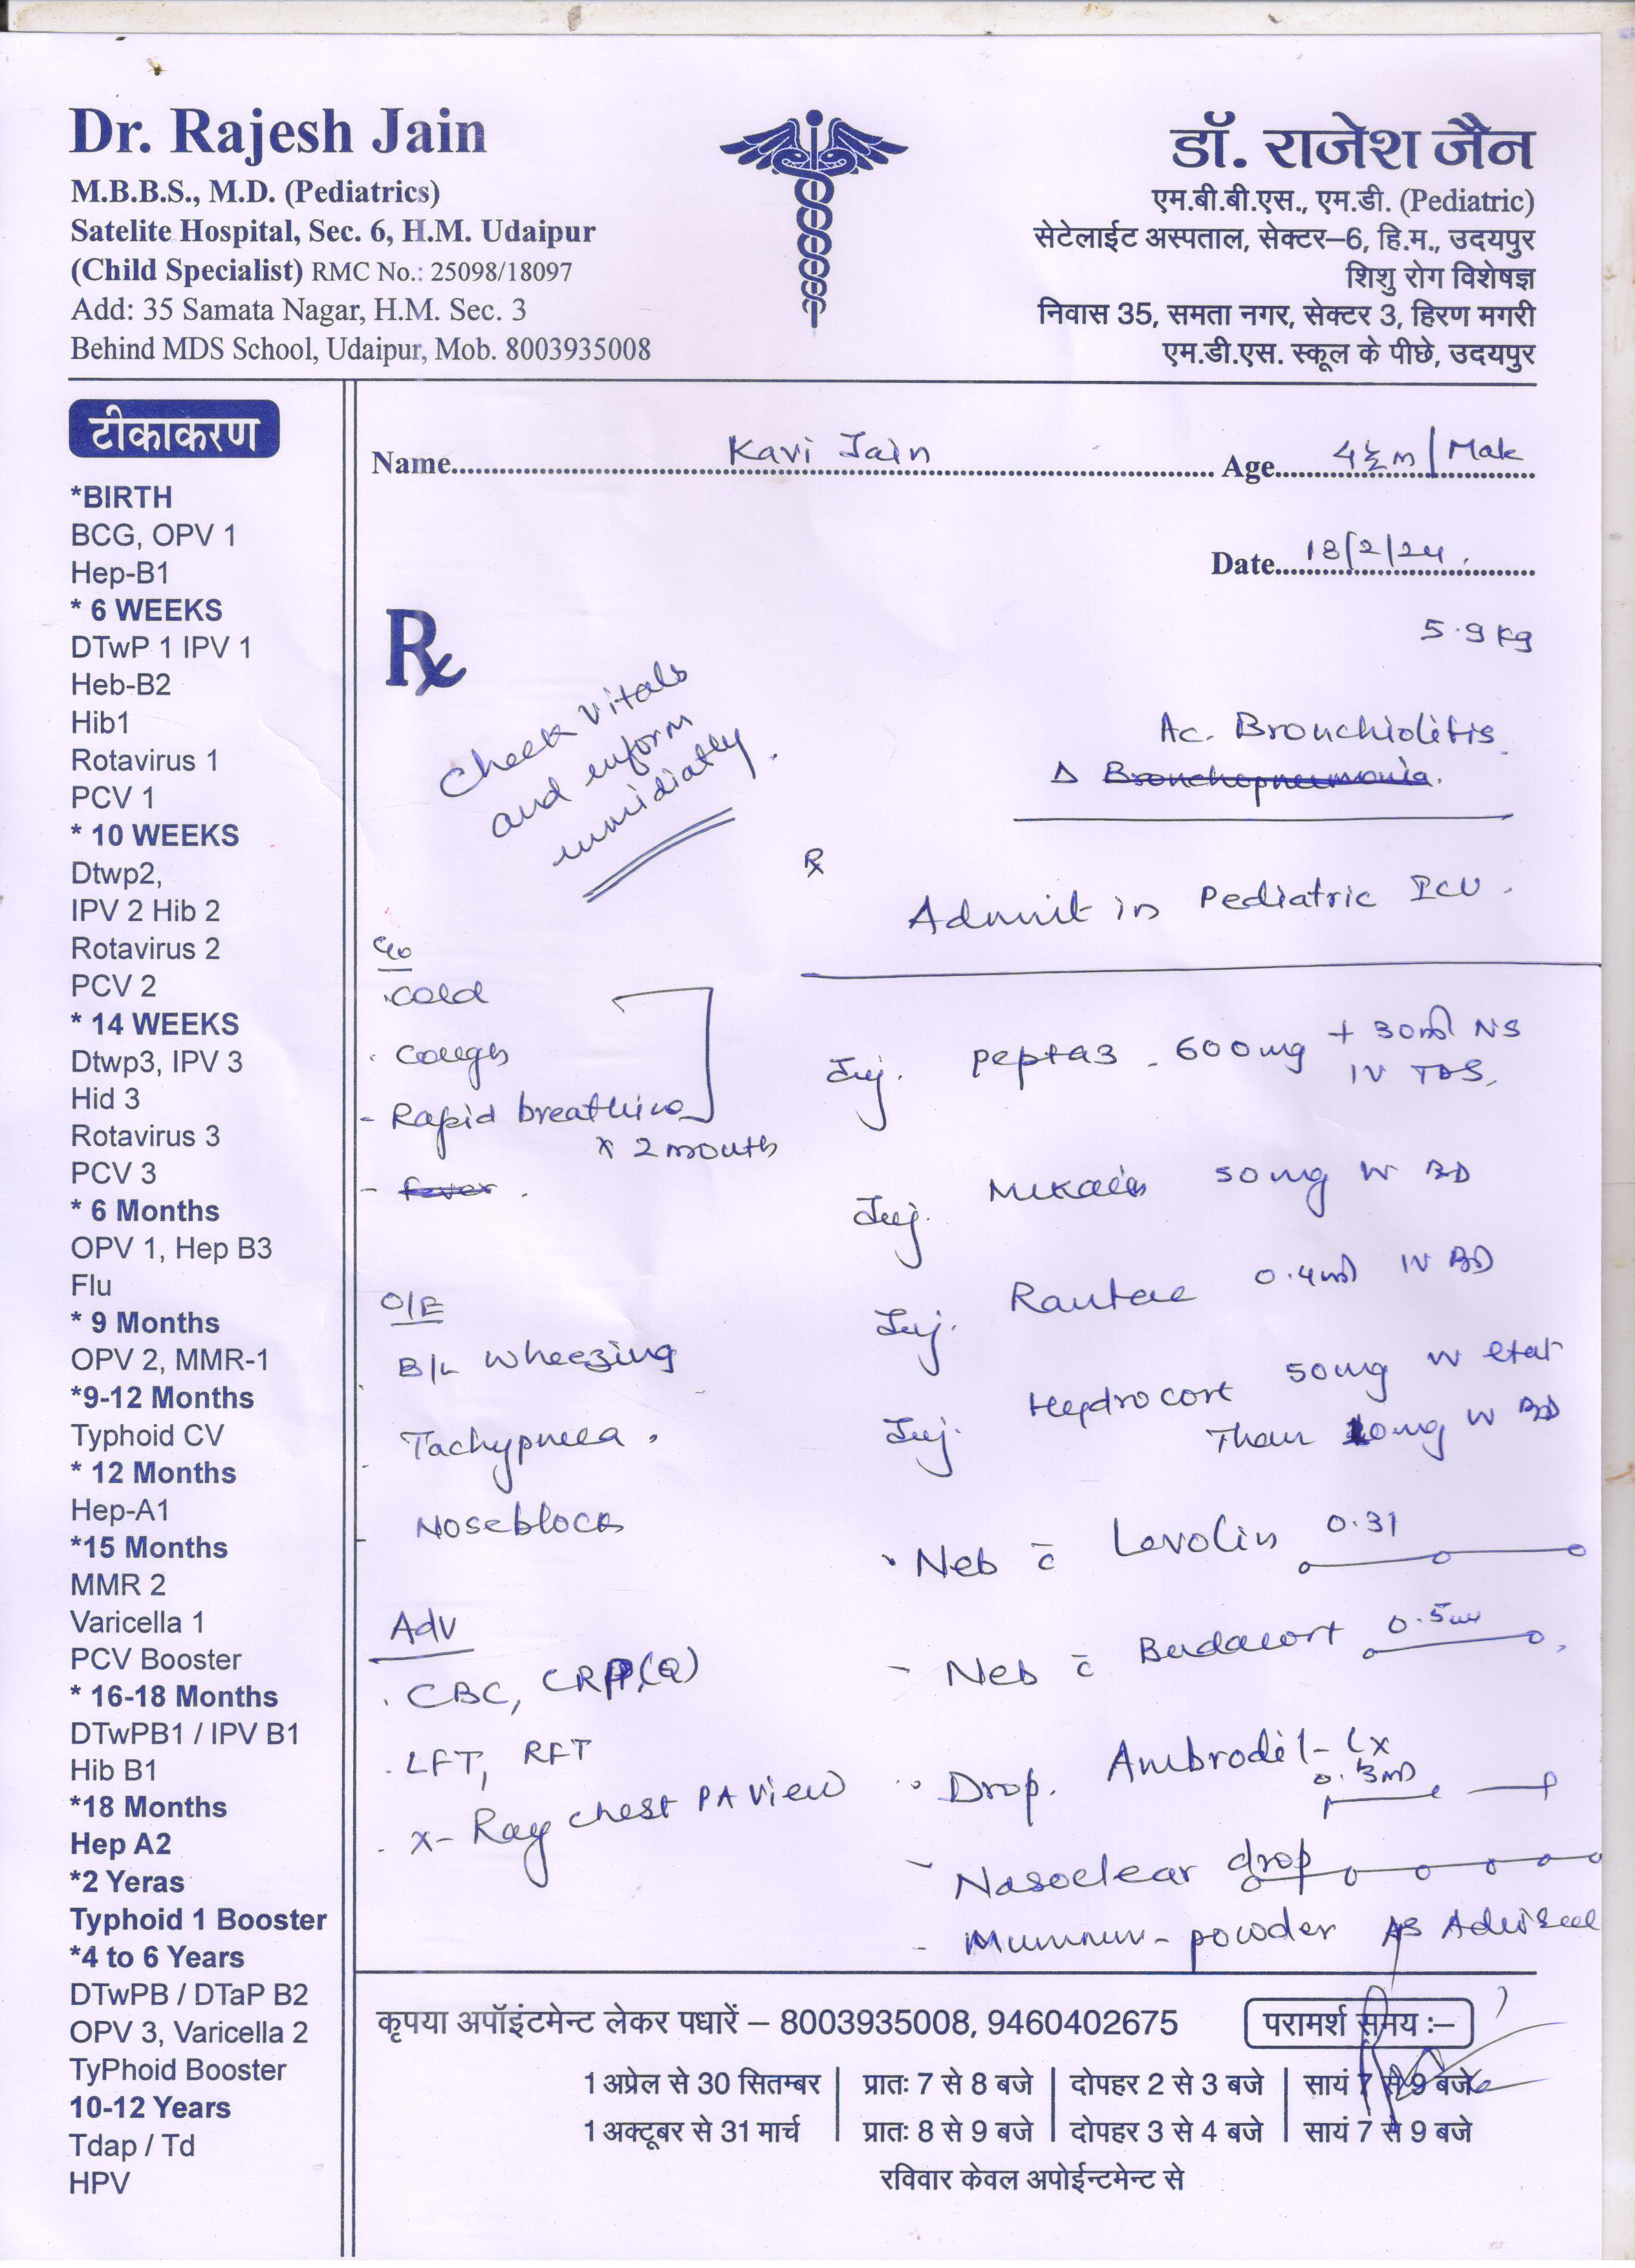 Dr. Rajesh Jain
M.B.B.S., M.D. (Pediatrics)
Satelite Hospital, Sec. 6, H.M. Udaipur
(Child Specialist) RMC No.: 25098/18097
Add: 35 Samata Nagar, H.M. Sec. 3
Behind MDS School, Udaipur, Mob. 8003935008
डॉ. राजेश जैन
एम.बी.बी.एस., एम.डी. (Pediatric)
सेटेलाईट अस्पताल, सेक्टर–6, हि.म., उदयपुर
शिशु रोग विशेषज्ञ
निवास 35, समता नगर, सेक्टर 3, हिरण मगरी
एम.डी.एस. स्कूल के पीछे, उदयपुर
टीकाकरण
*BIRTH
BCG, OPV 1
Hep-B1
* 6 WEEKS
DTwP 1 IPV 1
Heb-B2
Hib1
Rotavirus 1
PCV 1
* 10 WEEKS
Dtwp2,
IPV 2 Hib 2
Rotavirus 2
PCV 2
* 14 WEEKS
Dtwp3, IPV 3
Hid 3
Rotavirus 3
PCV 3
* 6 Months
OPV 1, Hep B3
Flu
* 9 Months
OPV 2, MMR-1
*9-12 Months
Typhoid CV
* 12 Months
Hep-A1
*15 Months
MMR 2
Varicella 1
PCV Booster
* 16-18 Months
DTwPB1 / IPV B1
Hib B1
*18 Months
Hep A2
*2 Yeras
Typhoid 1 Booster
*4 to 6 Years
DTwPB / DTaP B2
OPV 3, Varicella 2
TyPhoid Booster
10-12 Years
Tdap / Td
HPV
Name Kavi Jain Age 4½m/Male
Date 18/2/24.
5.9 kg
Rx
Check vitals
and inform
immidiatly.
Ac. Bronchiolitis
Δ Bronchopneumonia.
Rx
Admit in Pediatric ICU.
C/o
. Cold
. Cough
- Rapid breathing
x 2 month
- fever.
O/E
B/L wheezing
Tachypnea.
Noseblock
Adv
. CBC, CRP(Q)
. LFT, RFT
. X-Ray chest PA view
Inj. Peptaz 600mg + 30ml NS
IV TDS,
Inj. Mikacin 50mg IV BD
Inj. Rantac 0.4ml IV BD
Inj. Hydrocort 50mg IV stat
Then 10mg IV BD
Neb c̄ Levolin 0.31
- Neb c̄ Budacort 0.5
Drop. Ambrodil-LX
0.3ml
- Nasoclear drop
- powder As Advised
कृपया अपॉइंटमेन्ट लेकर पधारें – 8003935008, 9460402675
परामर्श समय :–
1 अप्रेल से 30 सितम्बर | प्रातः 7 से 8 बजे | दोपहर 2 से 3 बजे | सायं 7 से 9 बजे
1 अक्टूबर से 31 मार्च | प्रातः 8 से 9 बजे | दोपहर 3 से 4 बजे | सायं 7 से 9 बजे
रविवार केवल अपोईन्टमेन्ट से